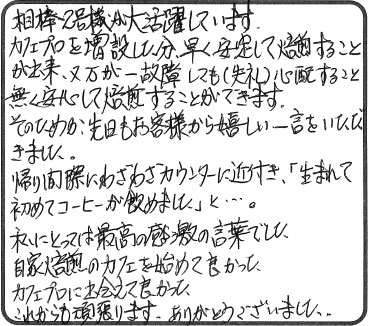 相棒2号様が大活躍しています。
カフェプロを増設した分、早く安定して焙煎すること
が出来、又万が一故障しても(失礼)心配すること
無く安心して焙煎することができます。
そのためか、先日もお客様から嬉しい一言をいただ
きました。
帰り間際にわざわざカウンターに近付き、「生まれて
初めてコーヒーが飲めました。」と…。
私にとっては最高の感激の言葉でした。
自家焙煎のカフェを始めて良かった。
カフェプロに出会えて良かった。
これからも頑張ります。ありがとうございました。